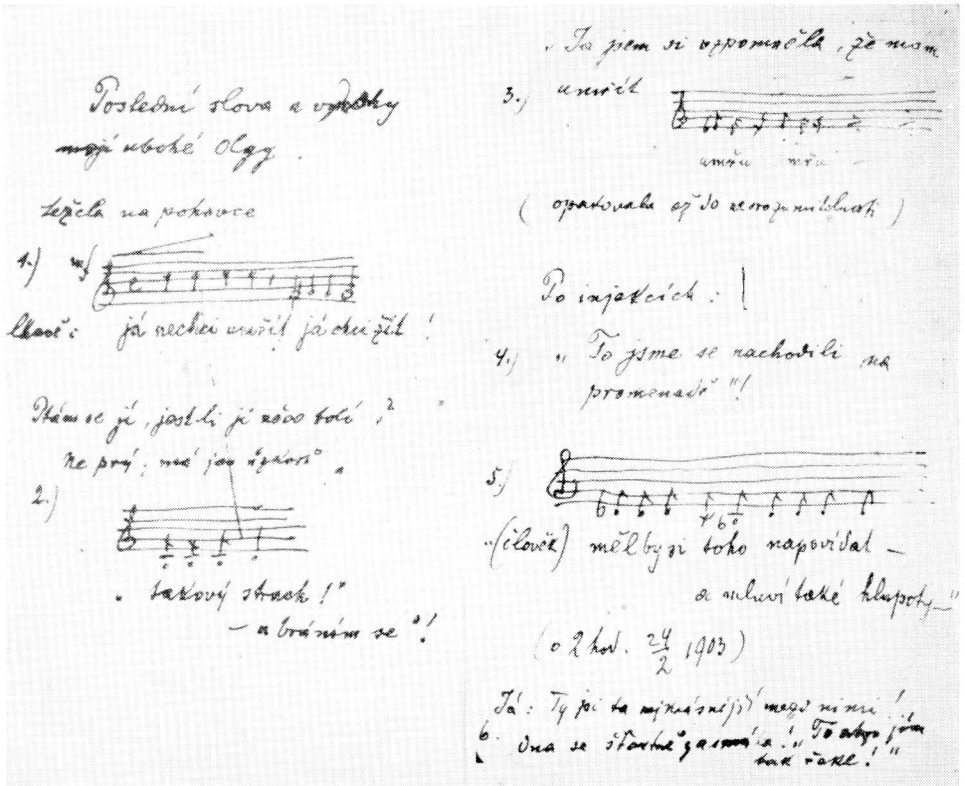 Poslední slova a vzdechy
mojí ubohé Olgy.
Ležela na pohovce
1.) mf
lkavě: já nechci umřít já chci žít!
Ptám se jí, jestli jí něco bolí?
Ne prý; má jen úzkost"
2.)
„takový strach!"
– a bráním se"!
„Ta jsem si vzpomněla, že mam
3.) umřít
umřu mřu
(opakovala až do nesrozumitelnosti)
Po injekcích:
4.) „To jsme se nachodili na
promenadě"!
5.)
„(člověk) měl by si toho napovídat –
a mluví také hlupoty –"
(o 2 hod. 24/2 1903)
Já: Ty jsi ta nejkrásnější mezi nimi!
6. Ona se šťastně zasmála! „To abys jim
tak řekl!"